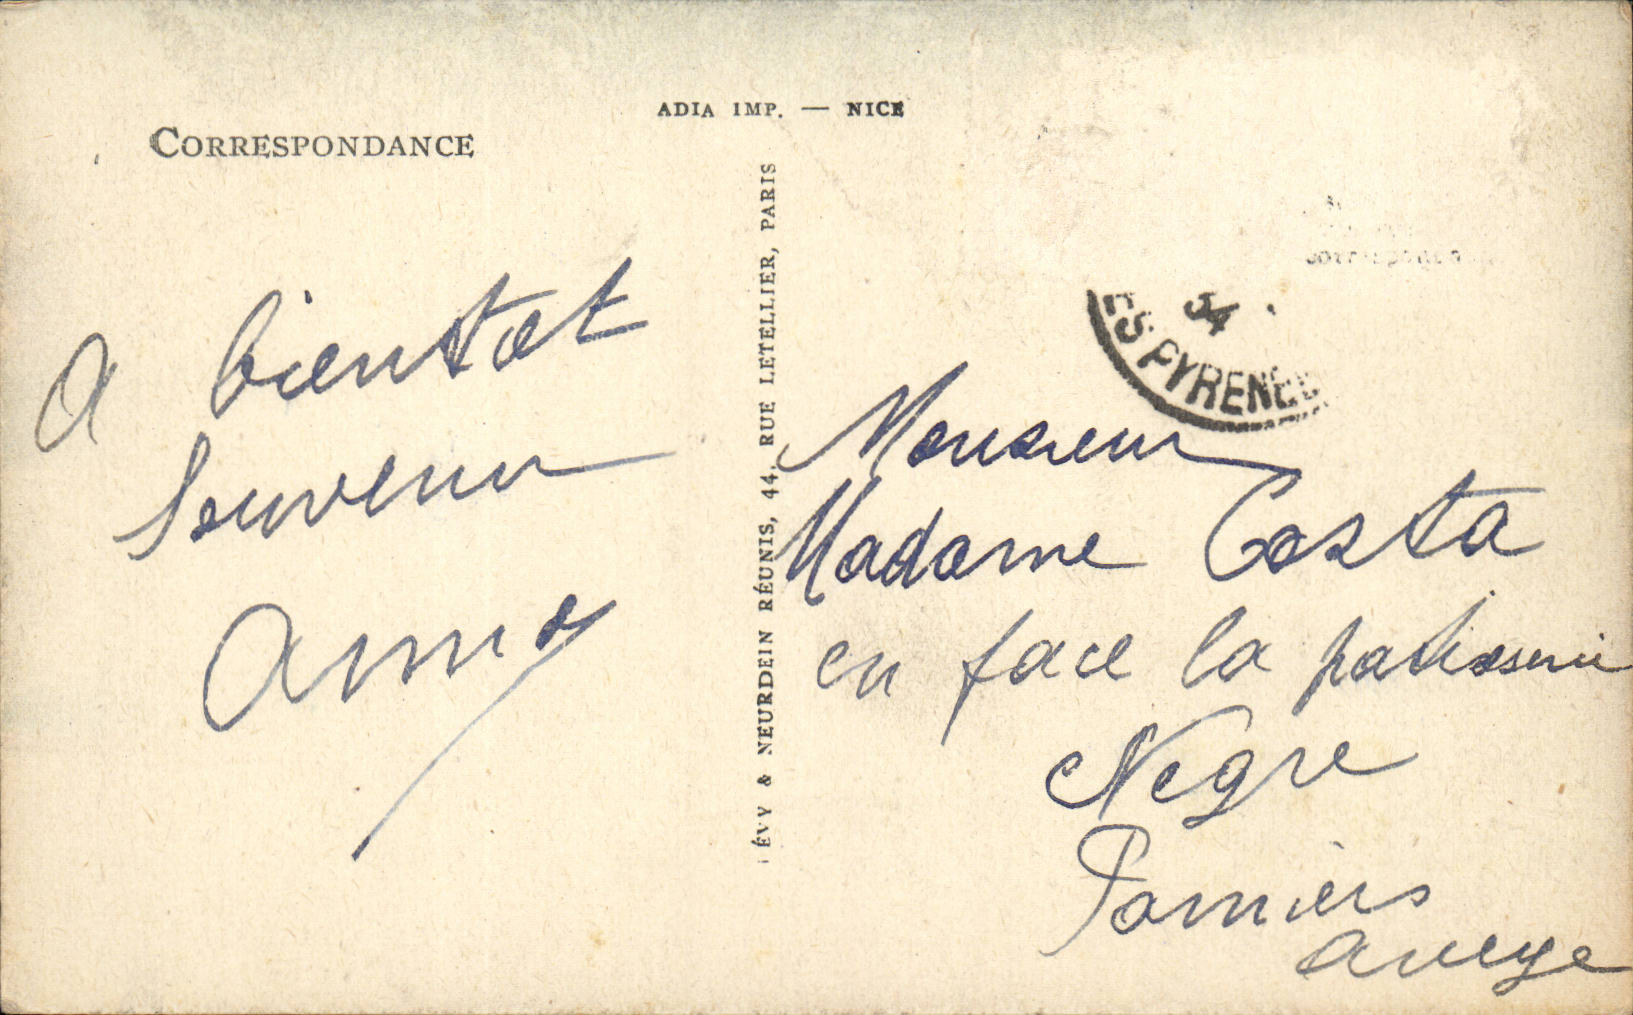 ADIA IMP. — NICE
CORRESPONDANCE
LÉVY & NEURDEIN RÉUNIS, 44, RUE LETELLIER, PARIS
A bientot
Souvenir
34
ES PYRENEE
Monsieur
Madame Costa
en face la patisserie
Negre
Pamiers